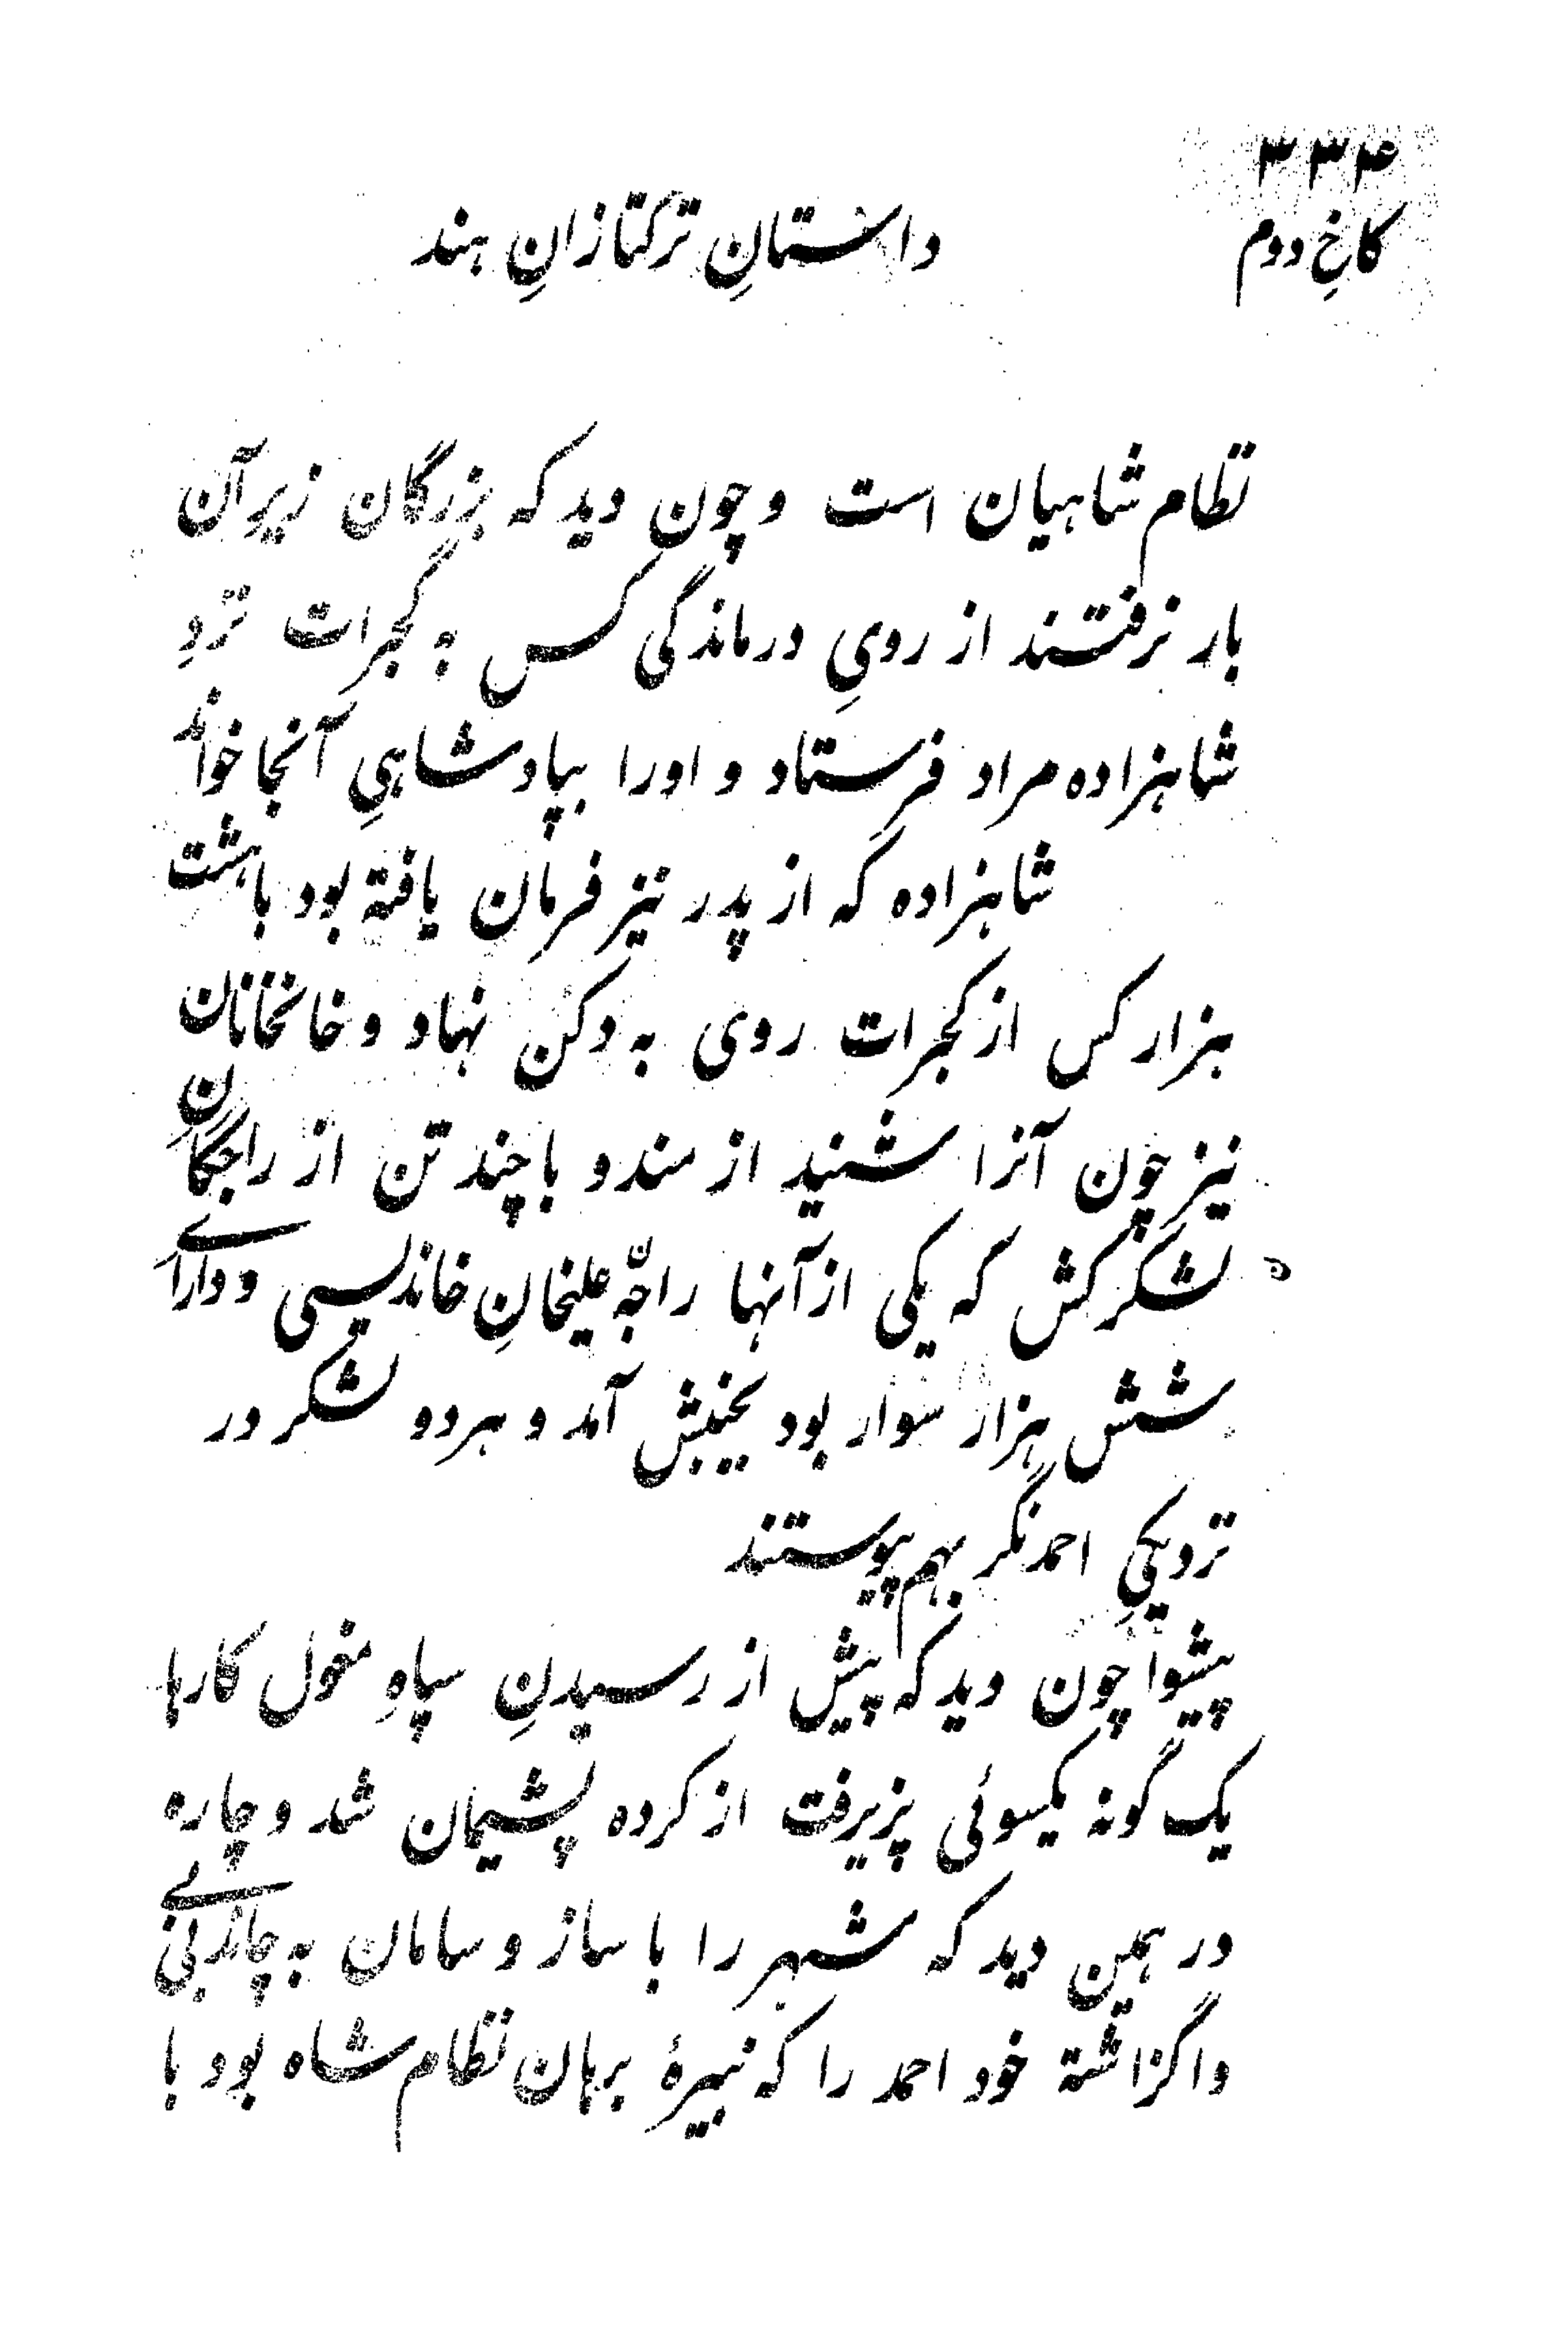 ۳۳۴
کاخِ دوم
داستانِ ترکتازانِ هند
نظام شاهیان است و چون دید که بزرگان زیر آن
بار نرفتند از رویِ درماندگی کس به گجرات نزدِ
شاهزاده مراد فرستاد و اورا بپادشاهیِ آنجا خواند
شاهزاده که از پدر نیز فرمان یافته بود با هشت
هزار کس از گجرات روی به دکن نهاد و خانخانان
نیز چون آنرا شنید از مندو با چند تن از راجگانِ
لشکرکش که یکی از آنها راجّه علیخانِ خاندیسی و دارای
شش هزار سوار بود بجنبش آمد و هردو لشکر در
نزدیکیِ احمدنگر بهم پیوستند
پیشوا چون دید که پیش از رسیدنِ سپاهِ مغول کارها
یک گونه یکسوئی پزیرفت از کرده پشیمان شد و چاره
در همین دید که شهر را با ساز و سامان به چاندبی بی
واگزاشته خود احمد را که نبیرهٔ برهان نظام شاه بود با